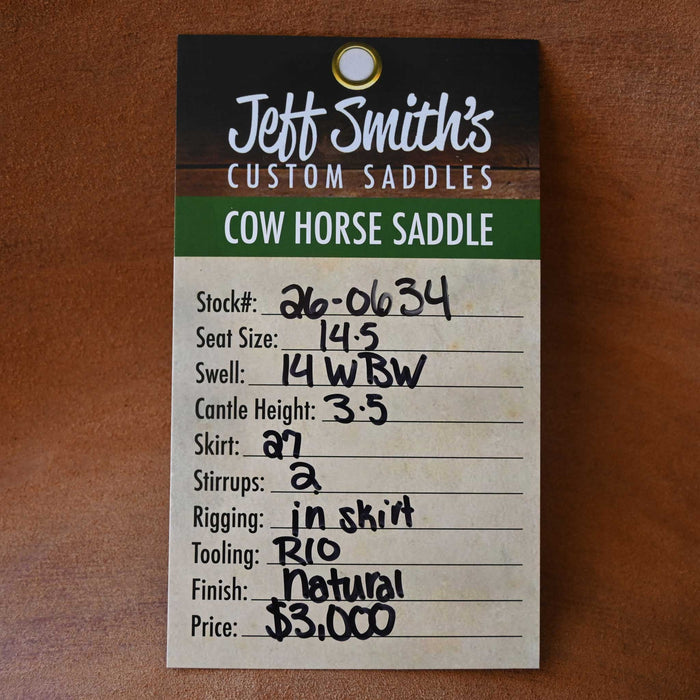 Jeff Smith's
CUSTOM SADDLES
COW HORSE SADDLE
Stock#: 26-0634
Seat Size: 14.5
Swell: 14 WBW
Cantle Height: 3.5
Skirt: 27
Stirrups: 2
Rigging: in skirt
Tooling: R10
Finish: Natural
Price: $3,000